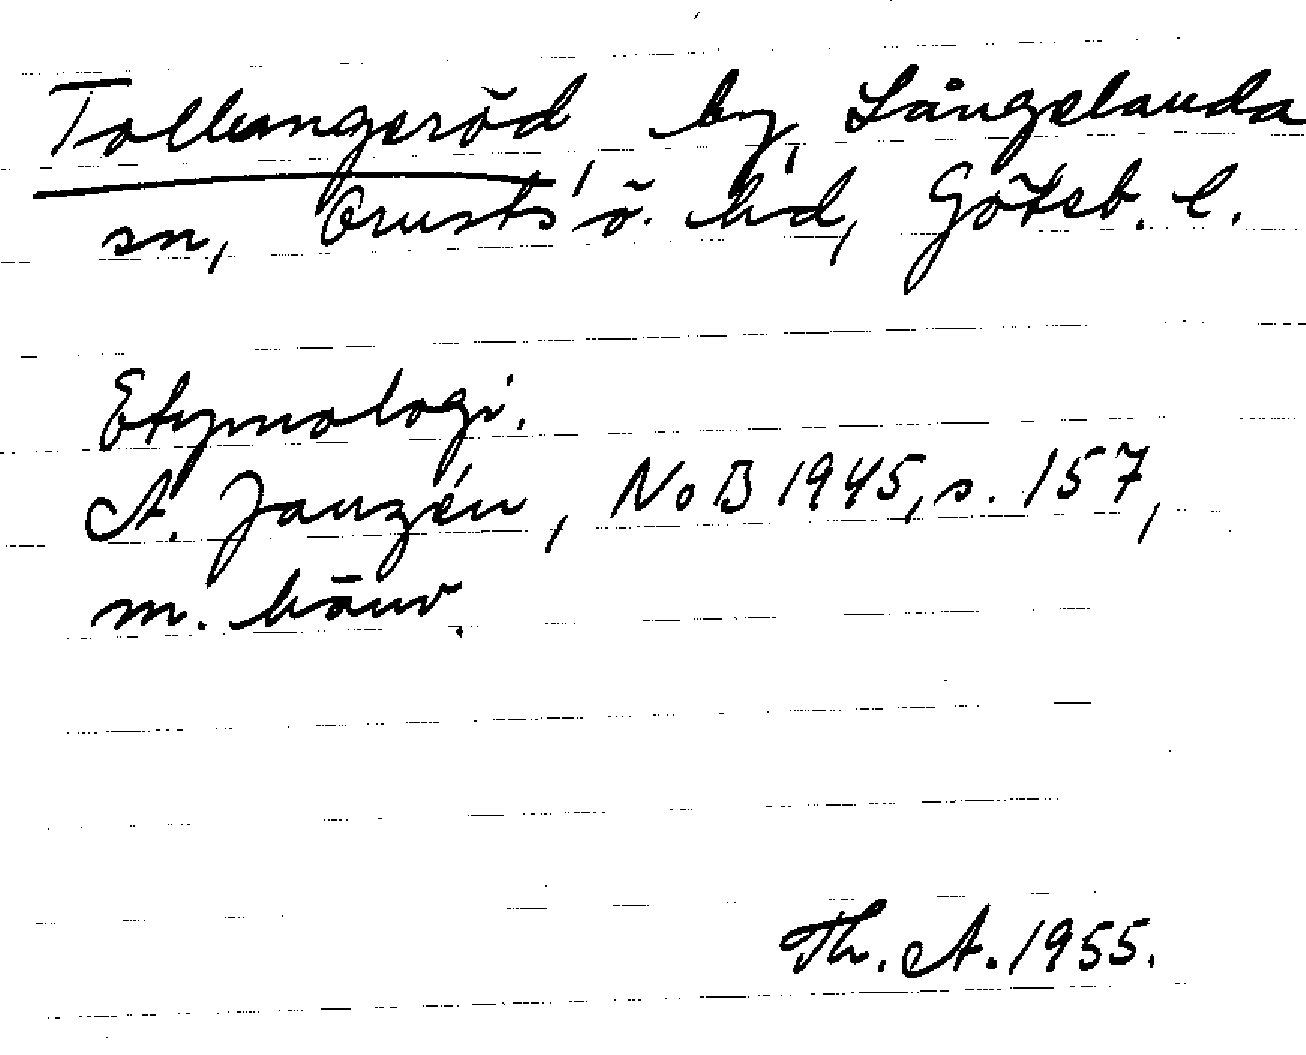 Tolkangeröd, by, Långelanda
sn, Orusts ö. hd, Göteb. l.
Etymologi.
A. Janzén, NoB 1945, s. 157,
m. hänv.
Th. A. 1955.